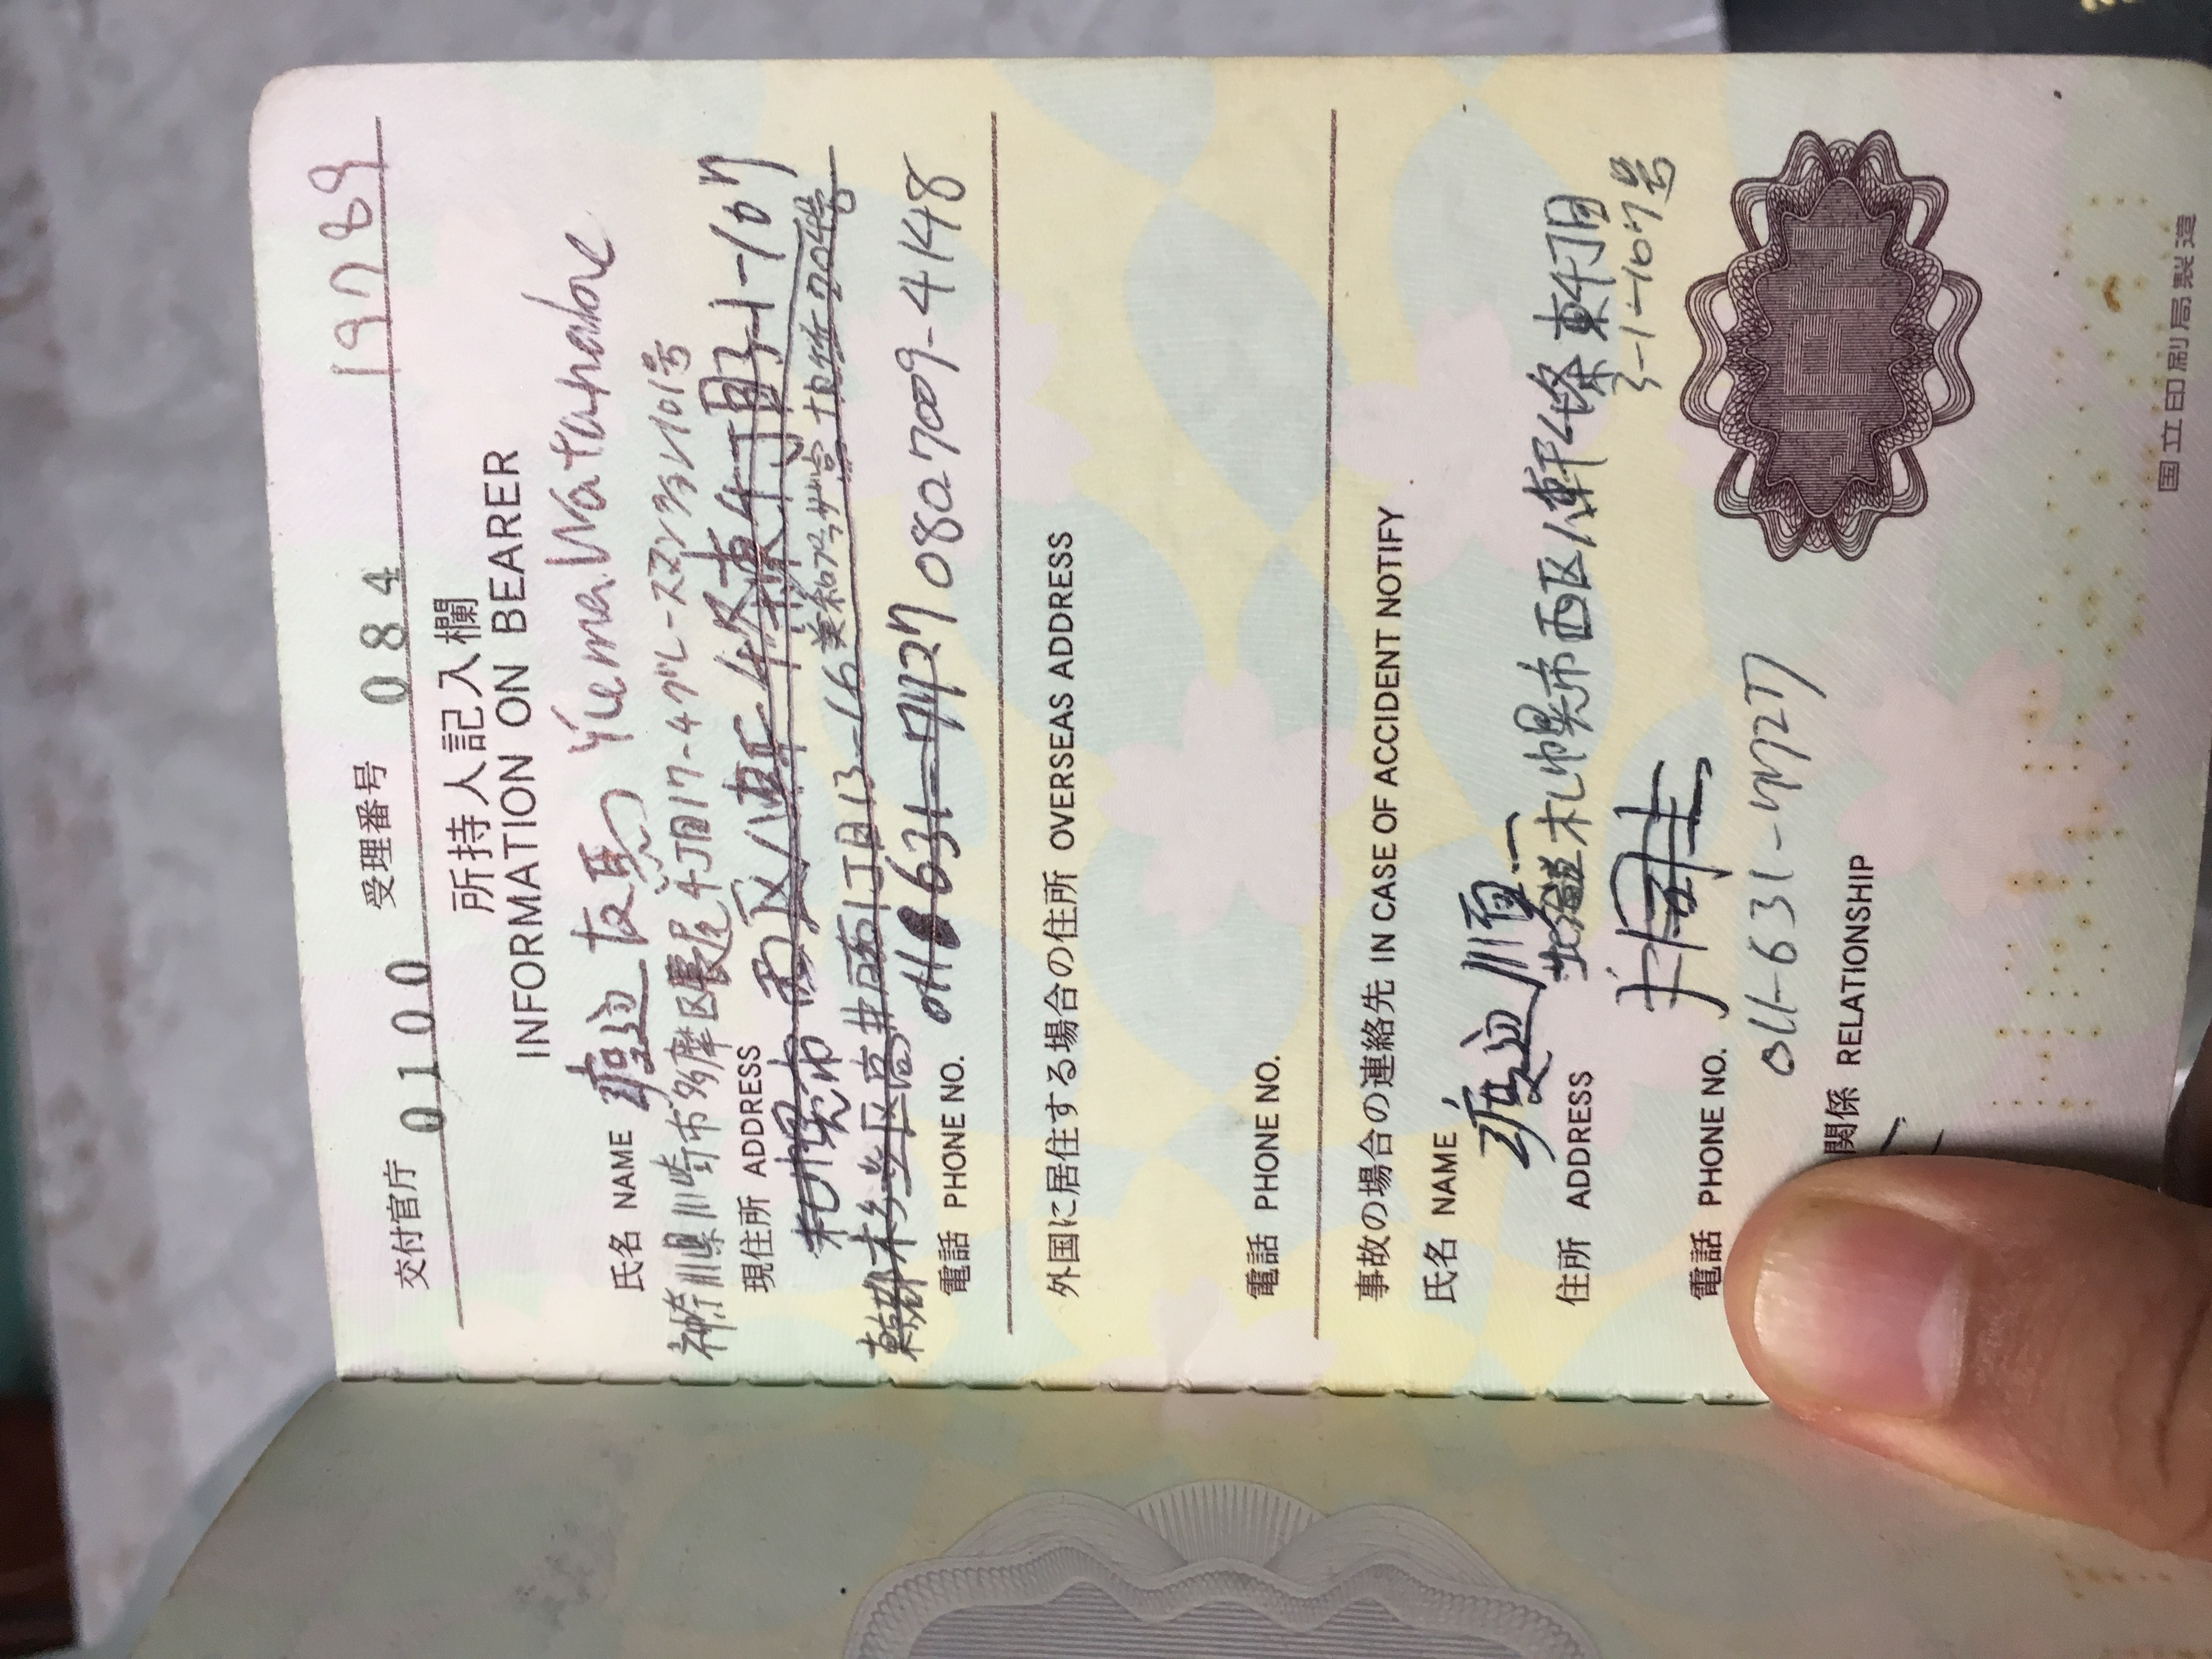 交付官庁 0100 受理番号 084 19789
所持人記入欄
INFORMATION ON BEARER
氏名 NAME 渡辺友馬 Yuma Watanabe
神奈川県川崎市多摩区長尾4丁目17-4グレースマンション101号
現住所 ADDRESS
札幌市西区八軒4条東4丁目3-1-107
東京都杉並区高井戸西1丁目13-16 204号
電話 PHONE NO. 011 631-7727 080-7009-4148
外国に居住する場合の住所 OVERSEAS ADDRESS
電話 PHONE NO.
事故の場合の連絡先 IN CASE OF ACCIDENT NOTIFY
氏名 NAME
渡辺順一
住所 ADDRESS 北海道札幌市西区八軒4条東4丁目
3-1-107号
電話 PHONE NO.
011-631-7727
関係 RELATIONSHIP
JPN
国立印刷局製造